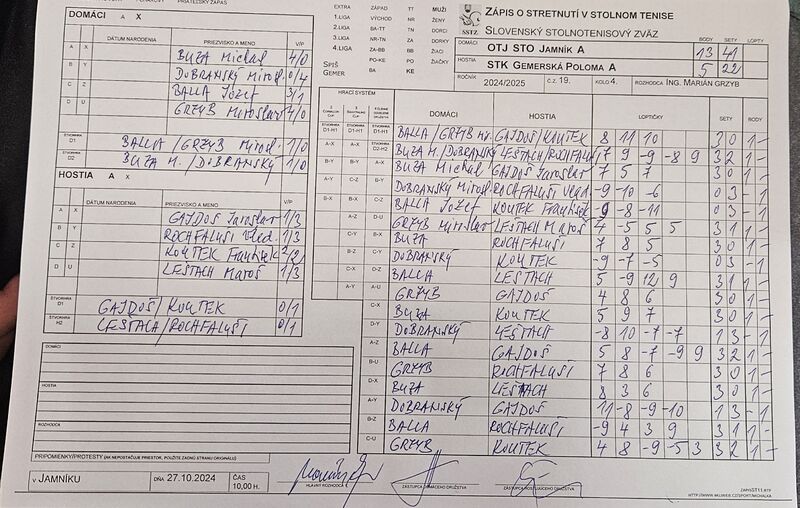 EXTRA ZÁPAD TT MUŽI
1.LIGA VÝCHOD NR ŽENY
2.LIGA BA-TT TN DORCI
3.LIGA NR-TN ZA DORKY
4.LIGA ZA-BB BB ŽIACI
PO-KE PO ŽIAČKY
SPIŠ
GEMER BA KE
SSTZ
ZÁPIS O STRETNUTÍ V STOLNOM TENISE
SLOVENSKÝ STOLNOTENISOVÝ ZVÄZ
BODY SETY LOPTY
DOMÁCI OTJ STO JAMNÍK A 13 41
HOSTIA STK GEMERSKÁ POLOMA A 5 22
ROČNÍK 2024/2025 Č.Z. 19. KOLO 4. ROZHODCA ING. MARIÁN GRZYB
DOMÁCI A X
DÁTUM NARODENIA PRIEZVISKO A MENO V/P
A X BUZA Michal 4/0
B Y DOBRANSKÝ Mirosl. 0/4
C Z BALLA Jozef 3/1
D U GRZYB Miroslav 4/0
ŠTVORHRA D1 BALLA/GRZYB Mirosl. 1/0
ŠTVORHRA D2 BUZA M./DOBRANSKÝ 1/0
HOSTIA A X
DÁTUM NARODENIA PRIEZVISKO A MENO V/P
A X GAJDOŠ Jaroslav 1/3
B Y ROCHFALUŠI Vlad. 1/3
C Z KOUTEK František 2/2
D U LEŠTACH Maroš 1/3
ŠTVORHRA GAJDOŠ/KOUTEK 0/1
ŠTVORHRA H2 LEŠTACH/ROCHFALUŠI 0/1
DOMÁCI
HOSTIA
ROZHODCA
PRIPOMIENKY/PROTESTY (AK NEPOSTAČUJE PRIESTOR, POUŽITE ZADNÚ STRANU ORIGINÁLU)
V JAMNÍKU DŇA 27.10.2024 ČAS 10,00 H.
HRACÍ SYSTÉM
DOMÁCI HOSTIA LOPTIČKY SETY BODY
D1-H1 D1-H1 D1-H1 BALLA/GRZYB Mi. GAJDOŠ/KOUTEK 8 11 10 3 0 1 -
A-X A-X D2-H2 BUZA M./DOBRANSKÝ LEŠTACH/ROCHFALUŠI 7 9 -9 -8 9 3 2 1 -
B-Y B-Y A-X BUZA Michal GAJDOŠ Jaroslav 7 5 7 3 0 1 -
A-Y C-Z B-Y DOBRANSKÝ Mirosl. ROCHFALUŠI Vlad. -9 -10 -6 0 3 - 1
B-X B-X C-Z BALLA Jozef KOUTEK František -9 -8 -11 0 3 - 1
A-Z D-U GRZYB Miroslav LEŠTACH Maroš 4 -5 5 5 3 1 1 -
C-Y B-X BUZA ROCHFALUŠI 7 8 5 3 0 1 -
B-Z C-Y DOBRANSKÝ KOUTEK -9 -7 -5 0 3 - 1
C-X D-Z BALLA LEŠTACH 5 -9 12 9 3 1 1 -
A-Y A-U GRZYB GAJDOŠ 4 8 6 3 0 1 -
C-X BUZA KOUTEK 5 9 7 3 0 1 -
D-Y DOBRANSKÝ LEŠTACH -8 10 -7 -7 1 3 - 1
A-Z BALLA GAJDOŠ 5 8 -7 -9 9 3 2 1 -
B-U GRZYB ROCHFALUŠI 7 8 6 3 0 1 -
D-X BUZA LEŠTACH 8 3 6 3 0 1 -
A-Y DOBRANSKÝ GAJDOŠ 11 -8 -9 -10 1 3 - 1
B-Z BALLA ROCHFALUŠI -9 4 3 9 3 1 1 -
C-U GRZYB KOUTEK 4 8 -9 -5 3 3 2 1 -
HLAVNÝ ROZHODCA ZÁSTUPCA DOMÁCEHO DRUŽSTVA ZÁSTUPCA HOSŤUJÚCEHO DRUŽSTVA
ZAPISST11.RTF